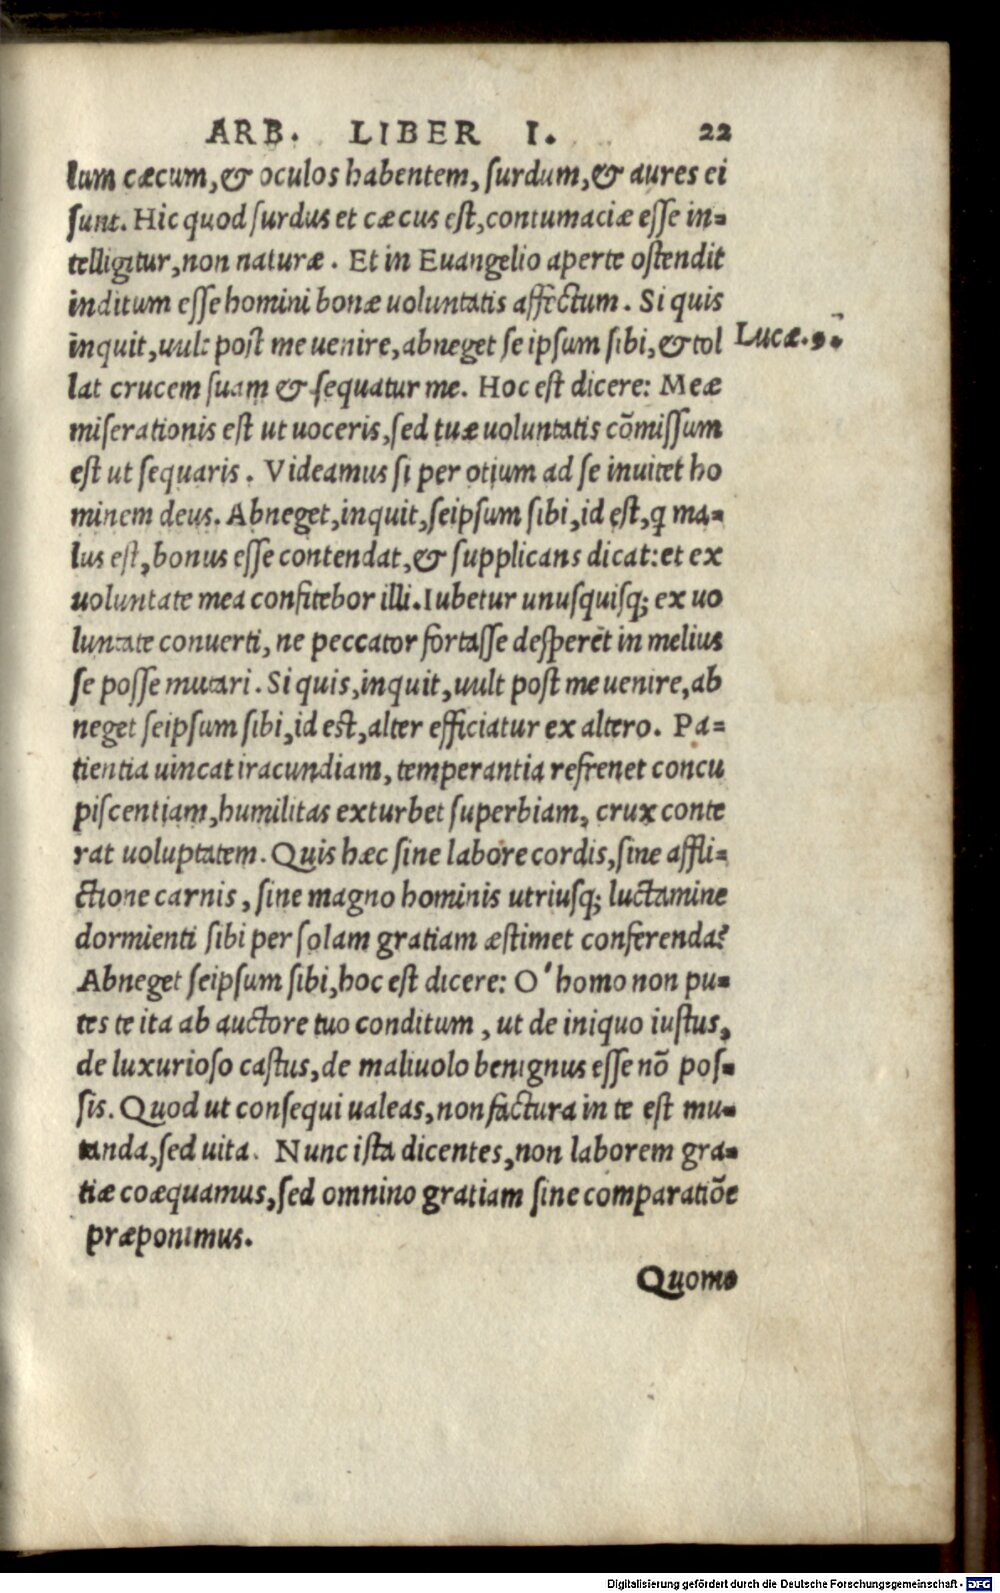 ARB. LIBER I. 22
lum cæcum, & oculos habentem, surdum, & aures ei
sunt. Hic quod surdus et cæcus est, contumaciæ esse in=
telligitur, non naturæ. Et in Euangelio aperte ostendit
inditum esse homini bonæ uoluntatis affectum. Si quis
inquit, uult post me uenire, abneget se ipsum sibi, & tol
Lucæ. 9.
lat crucem suam & sequatur me. Hoc est dicere: Meæ
miserationis est ut uoceris, sed tuæ uoluntatis cõmissum
est ut sequaris. Videamus si per otium ad se inuitet ho
minem deus. Abneget, inquit, seipsum sibi, id est, q ma=
lus est, bonus esse contendat, & supplicans dicat: et ex
uoluntate mea confitebor illi. Iubetur unusquisq; ex uo
luntate conuerti, ne peccator fortasse desperet in melius
se posse mutari. Si quis, inquit, uult post me uenire, ab
neget seipsum sibi, id est, alter efficiatur ex altero. Pa=
tientia uincat iracundiam, temperantia refrenet concu
piscentiam, humilitas exturbet superbiam, crux conte
rat uoluptatem. Quis hæc sine labore cordis, sine affli=
ctione carnis, sine magno hominis utriusq; luctamine
dormienti sibi per solam gratiam æstimet conferenda?
Abneget seipsum sibi, hoc est dicere: O' homo non pu=
tes te ita ab auctore tuo conditum, ut de iniquo iustus,
de luxurioso castus, de maliuolo benignus esse nõ pos=
sis. Quod ut consequi ualeas, non factura in te est mu=
tanda, sed uita. Nunc ista dicentes, non laborem gra=
tiæ coæquamus, sed omnino gratiam sine comparatiõe
præponimus.
Quomo
Digitalisierung gefördert durch die Deutsche Forschungsgemeinschaft - DFG